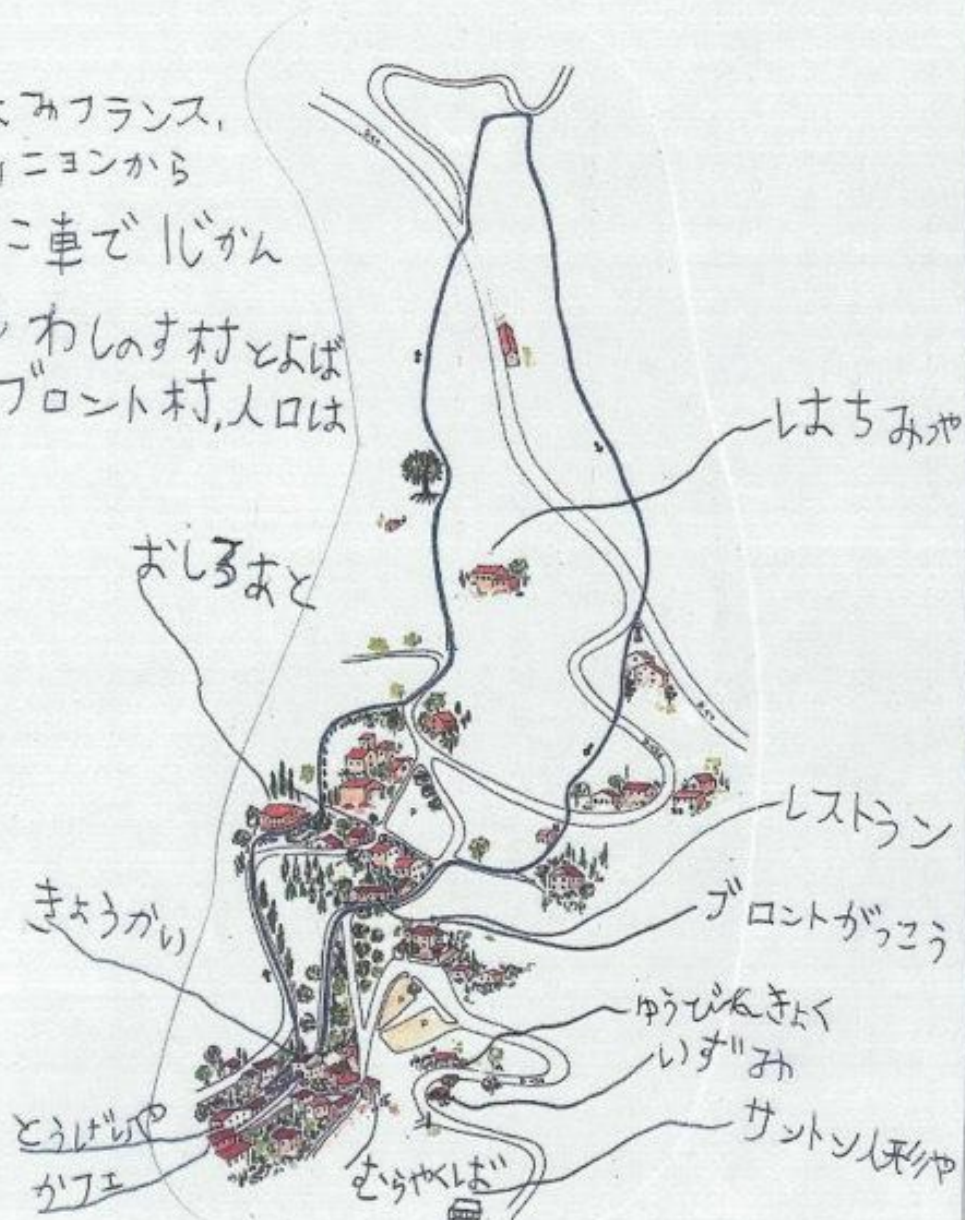 みフランス、
ニヨンから
に車で1じかん
わしのす村とよば
ブロント村,人口は
はちみつや
おしろあと
レストラン
ブロントがっこう
きょうかい
ゆうびんきょく
いずみ
サントン人形や
とうげいや
カフェ
むらやくば